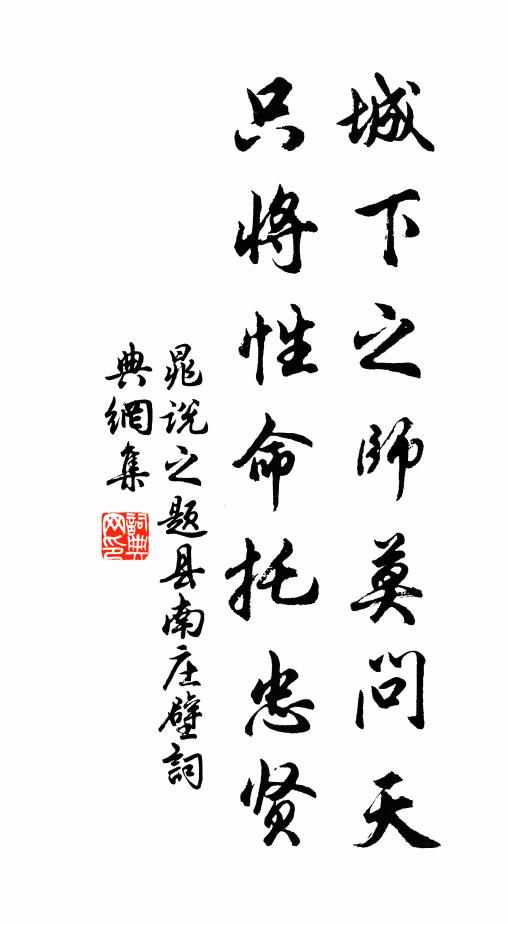 城下之师莫问天
只将性命托忠贤
晁说之题县南庄壁詞
典網集
詞典
网印